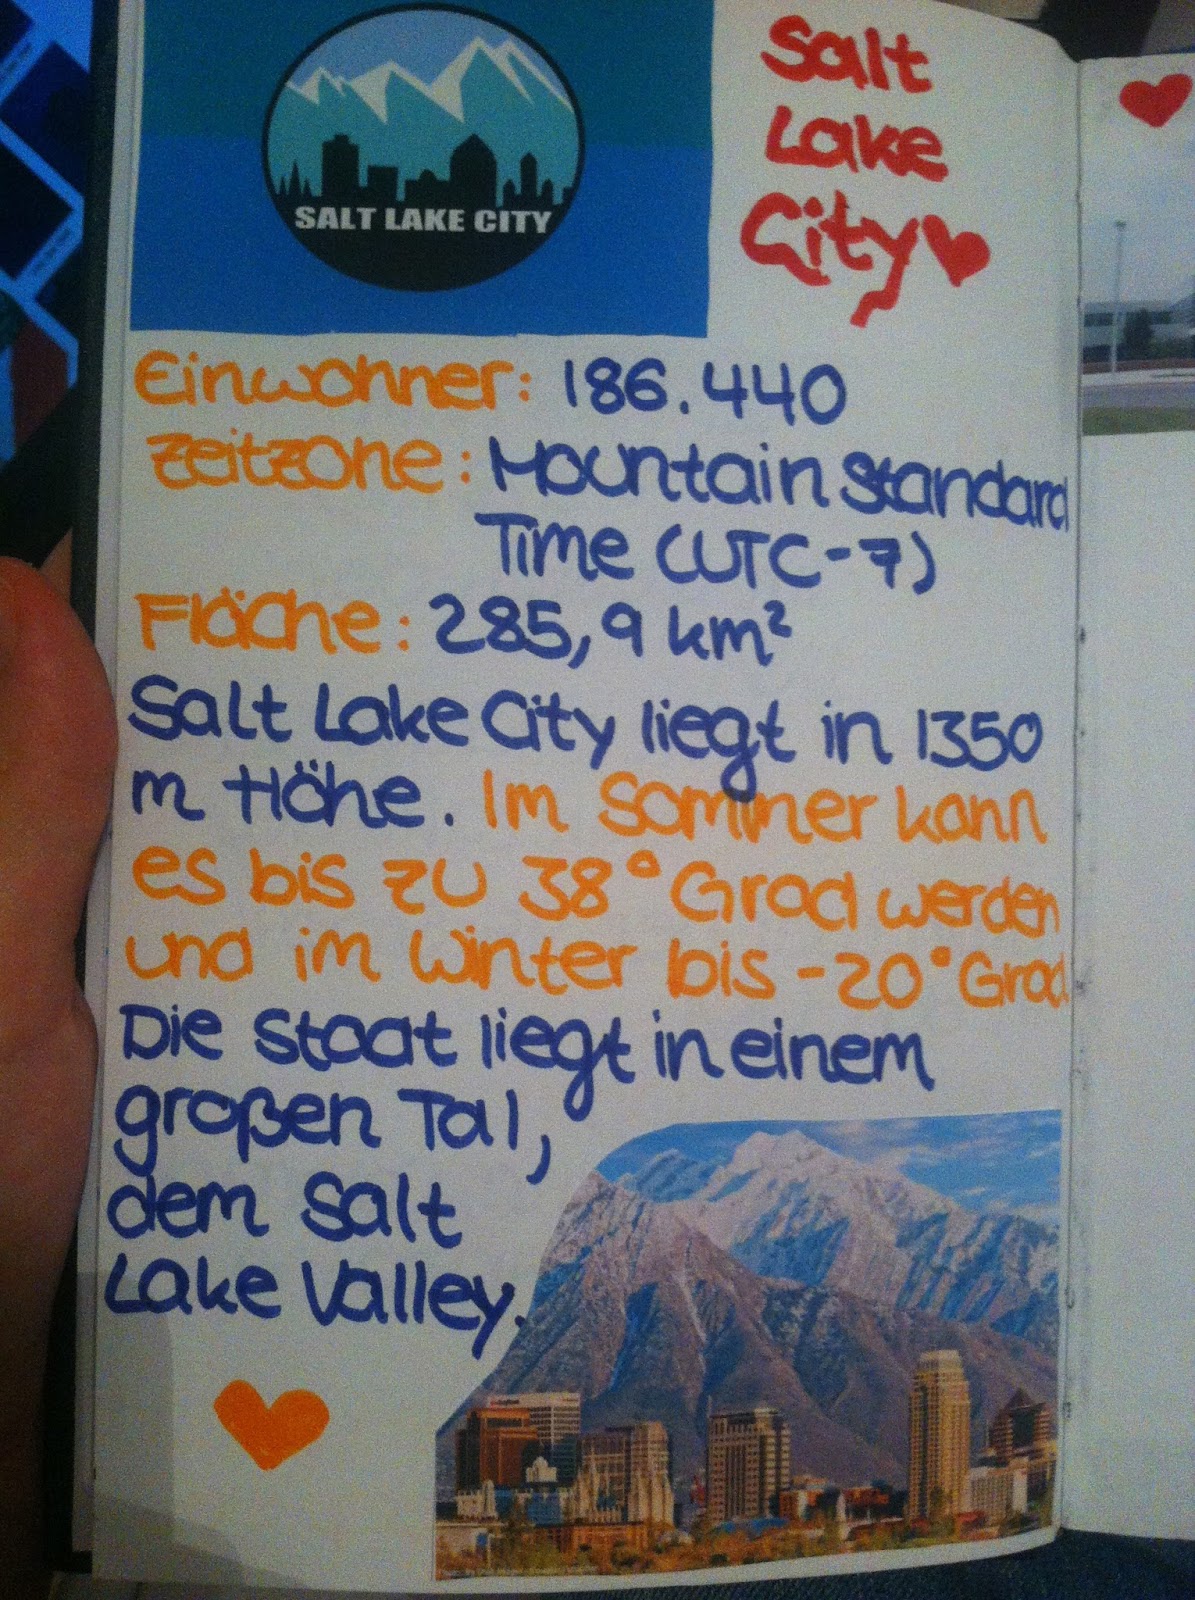 SALT LAKE CITY
Salt
Lake
City
Einwohner: 186.440
Zeitzone: Mountain Standard
Time (UTC-7)
Fläche: 285,9 km²
Salt Lake City liegt in 1350
m Höhe. Im Sommer kann
es bis zu 38° Grad werden
und im Winter bis -20° Grad
Die Staat liegt in einem
großen Tal,
dem Salt
Lake Valley.